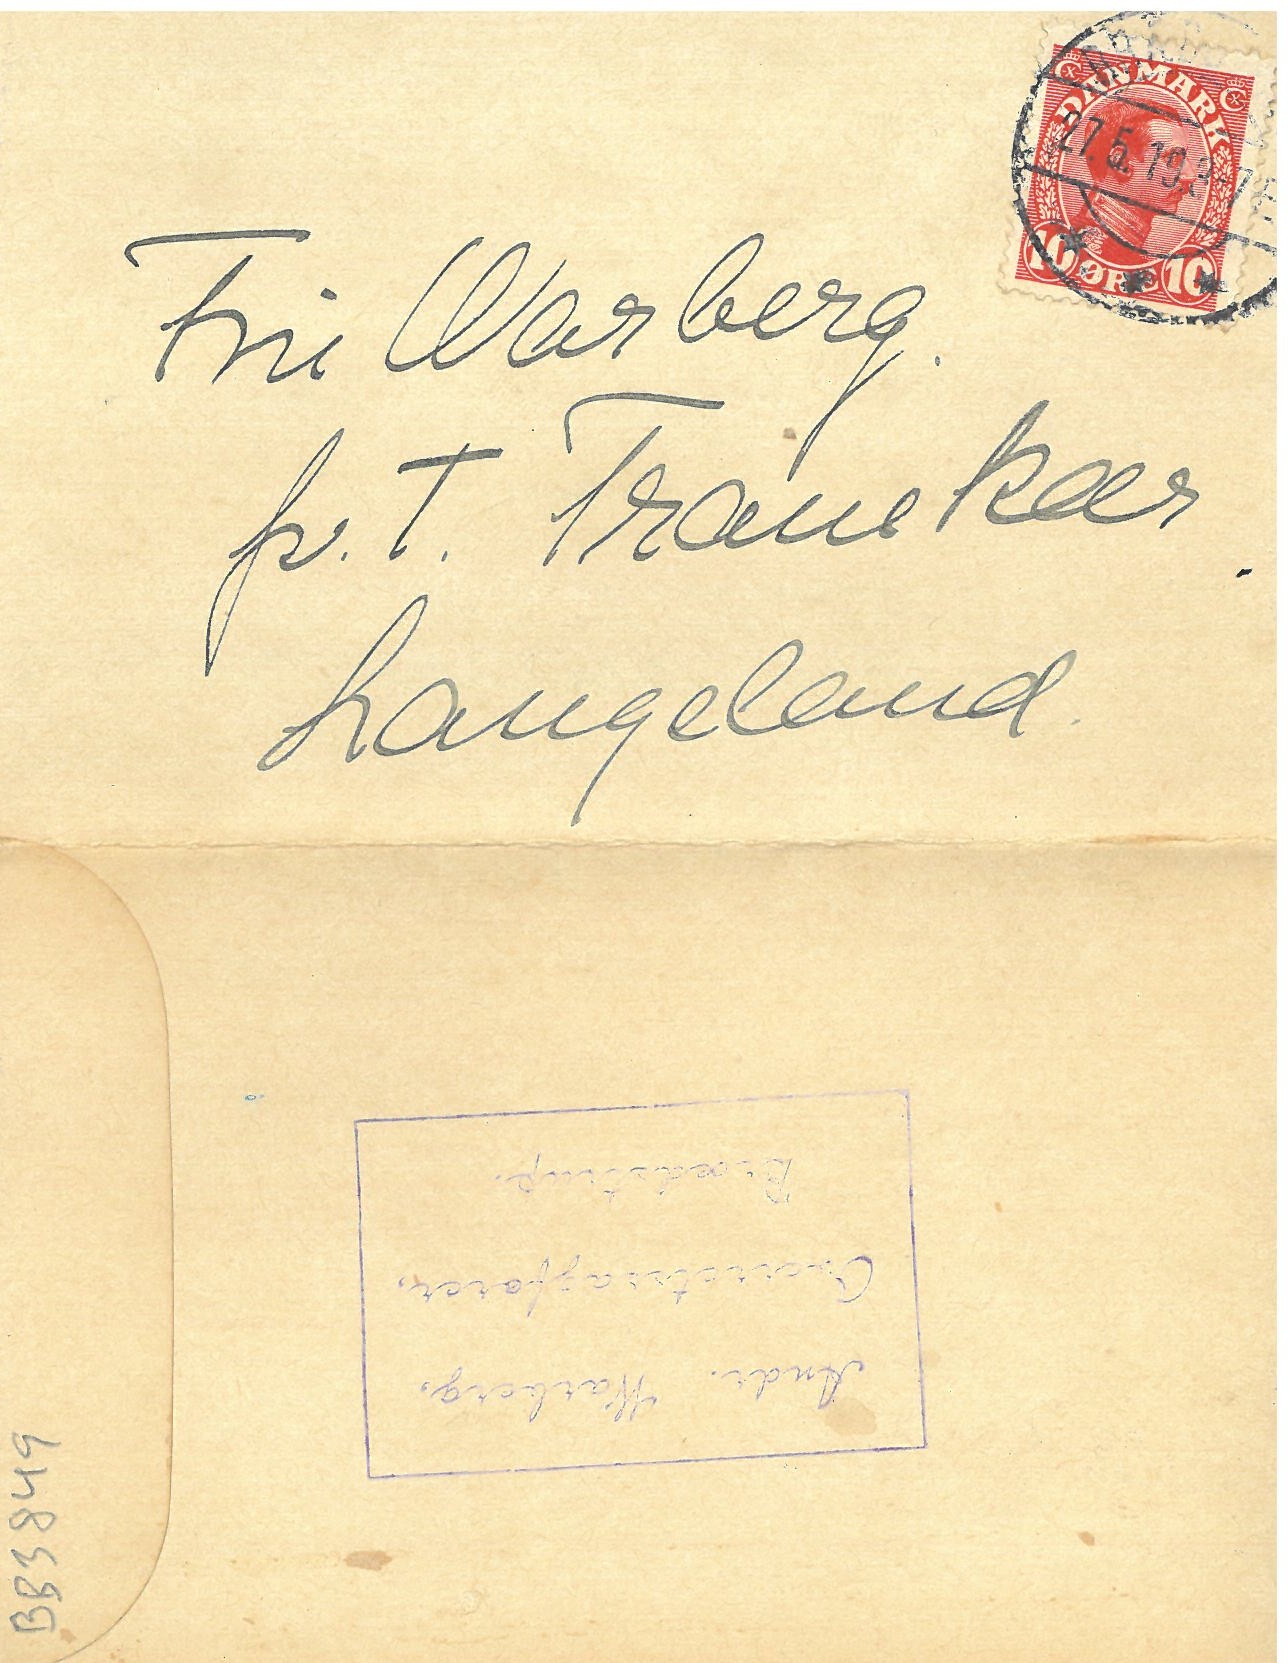 DANMARK
27.5.19.8-
10 ØRE 10
Fru Warberg.
p. T. Tranekær.
Langeland.
Andr. Warberg,
Overretssagfører,
Brædstrup.
BB3849